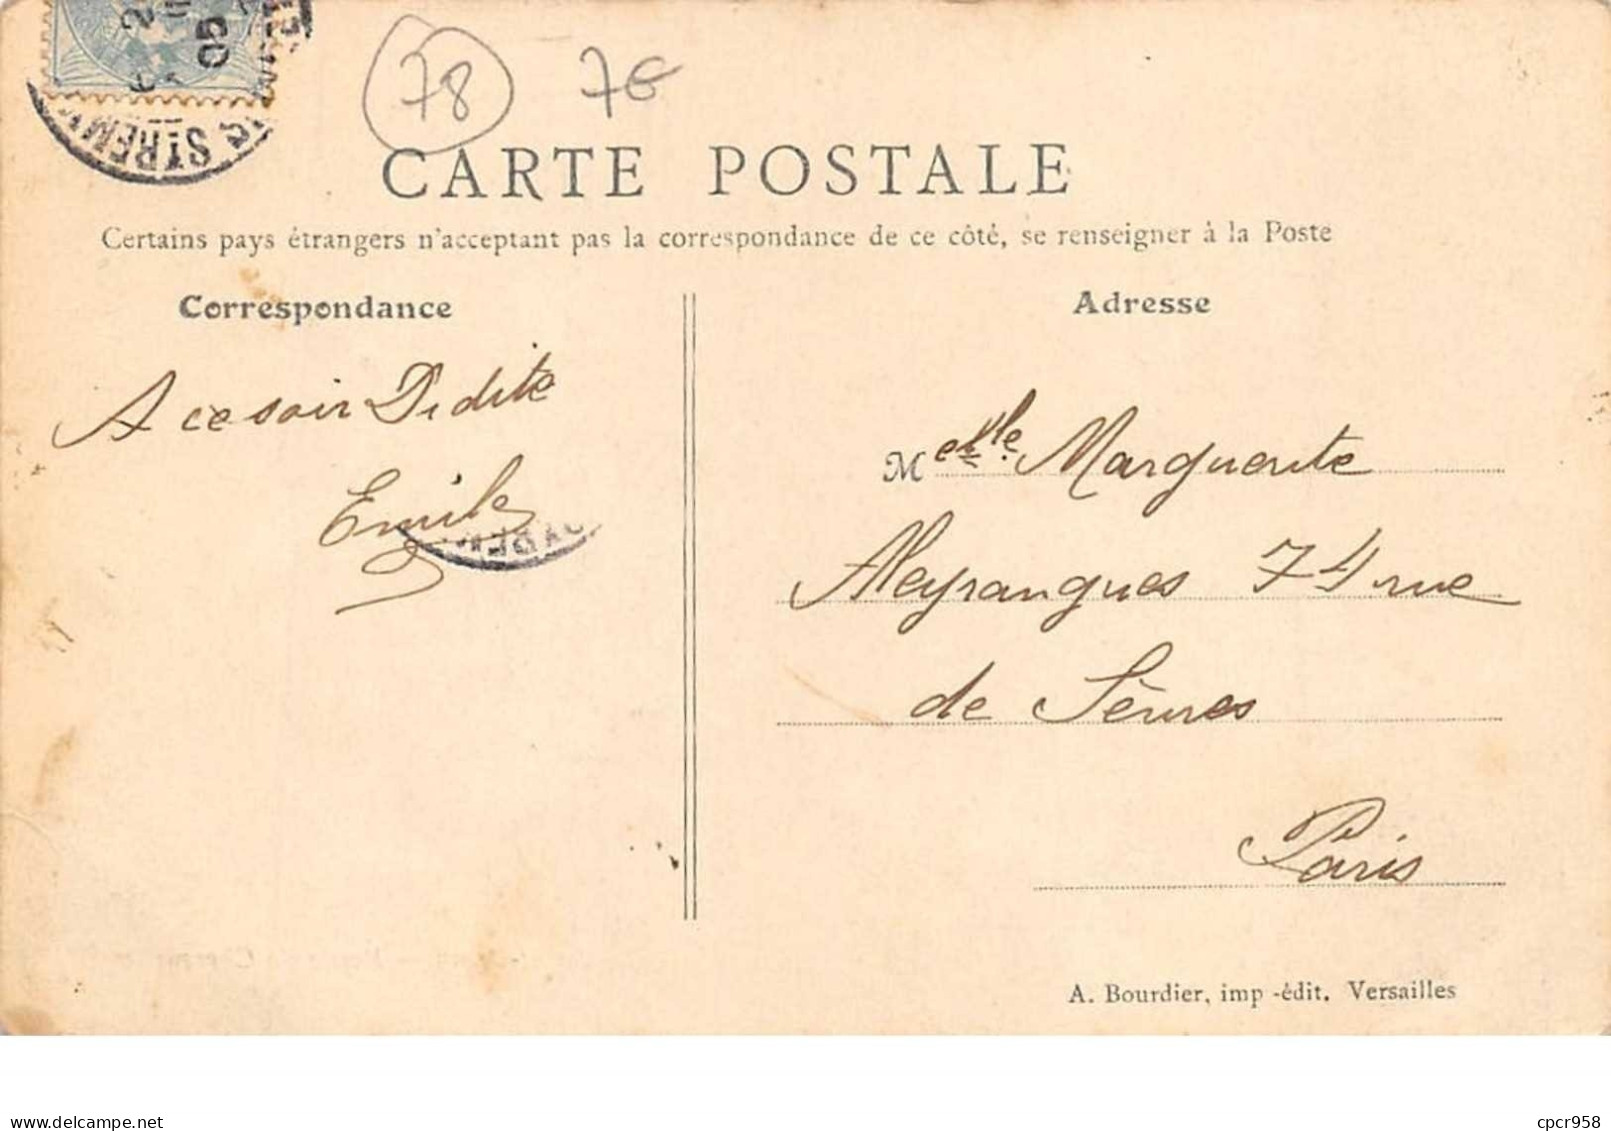 78 7€
05
ST REMY
CARTE POSTALE
Certains pays étrangers n'acceptant pas la correspondance de ce côté, se renseigner à la Poste
Correspondance
Adresse
A ce soir Didite
Emile
Melle Marguerite
Aleyrangues 74 rue
de Sèvres
Paris
A. Bourdier, imp-édit. Versailles
Delcampe.net
cpcr958